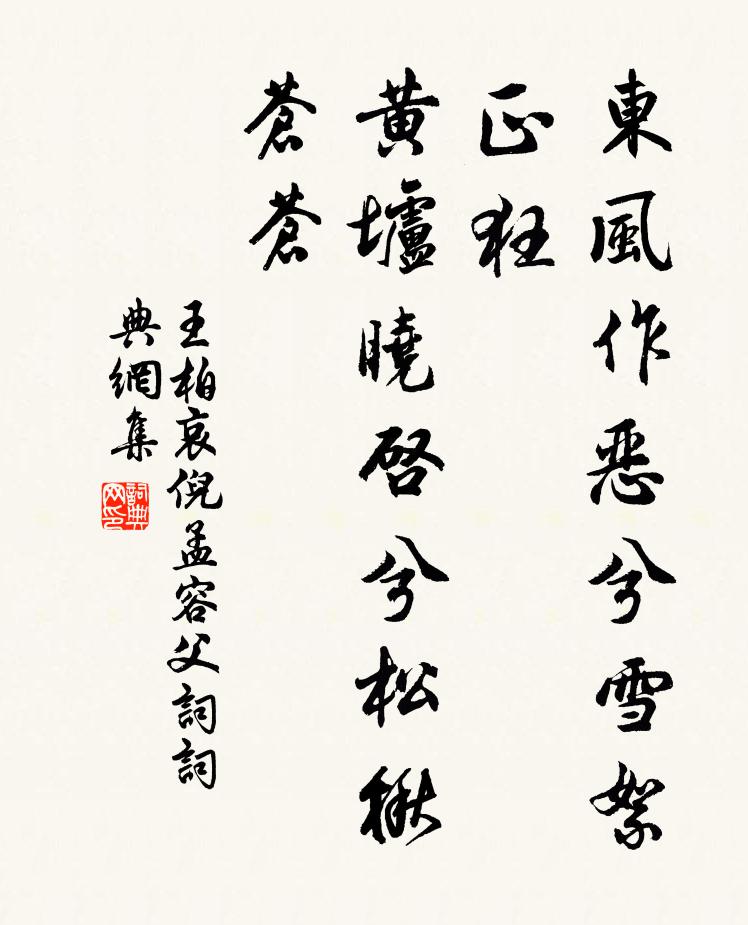 東風作惡兮雪絮
正狂
黃壚曉啓兮松楸
蒼蒼
王柏哀倪孟容父詞詞
典網集
詞典
网印